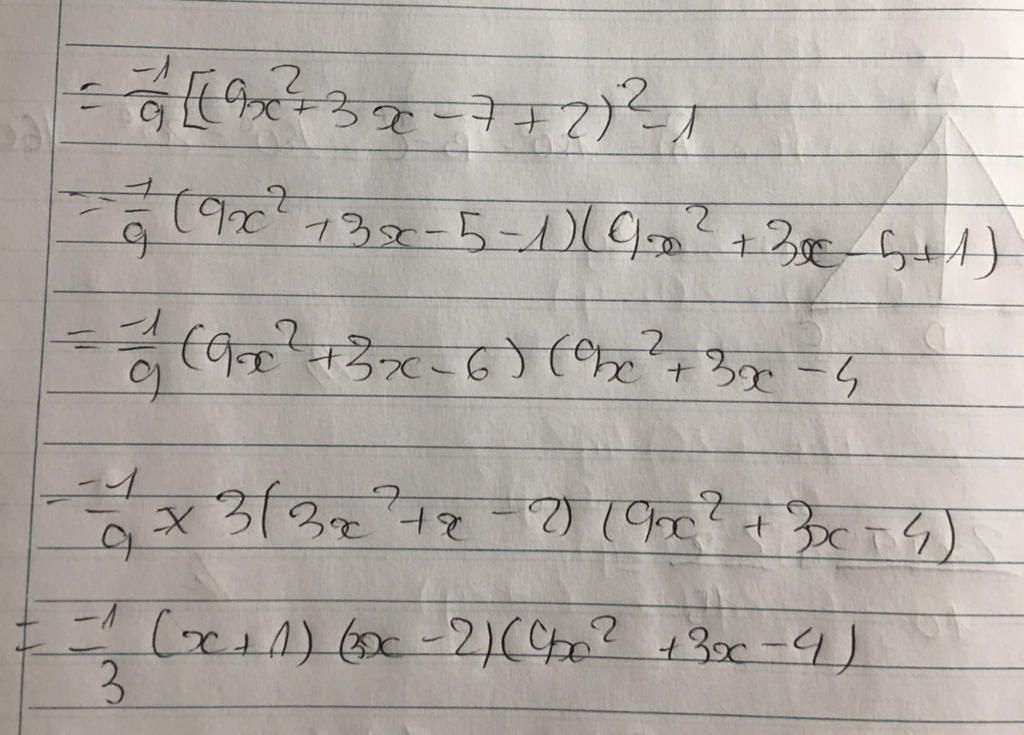 = -1/9 [(9x² + 3x - 7 + 2)² - 1
= -1/9 (9x² + 3x - 5 - 1)(9x² + 3x - 5 + 1)
= -1/9 (9x² + 3x - 6) (9x² + 3x - 4
= -1/9 × 3(3x² + x - 2) (9x² + 3x - 4)
= -1/3 (x + 1) (3x - 2)(9x² + 3x - 4)